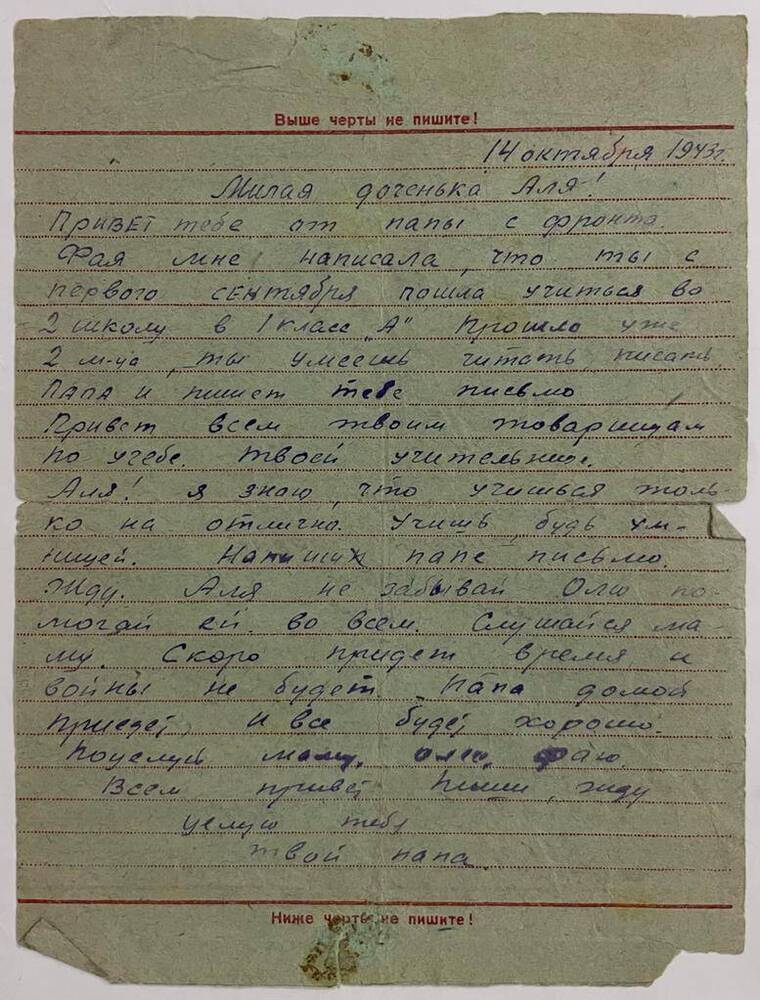 Выше черты не пишите!
14 октября 1943г.
Милая доченька Аля!
Привет тебе от папы с фронта.
Фая мне написала, что ты с
первого сентября пошла учиться во
2 школу в 1 класс „А" Прошло уже
2 м-ца, ты умеешь читать, писать.
Папа и пишет тебе письмо
Привет всем твоим товарищам
по учебе. твоей учительнице.
Аля! я знаю, что учишься толь
ко на отлично. Учишь, будь ум-
ницей. Напиши папе письмо.
Жду. Аля не забывай Олю по-
могай ей во всем. Слушайся ма-
му. Скоро придет время и
войны не будет. Папа домой
приедет, и все будет хорошо.
Поцелуй маму, олю, фаю.
Всем привет Пиши, жду
целую тебя
твой папа
Ниже черты не пишите!